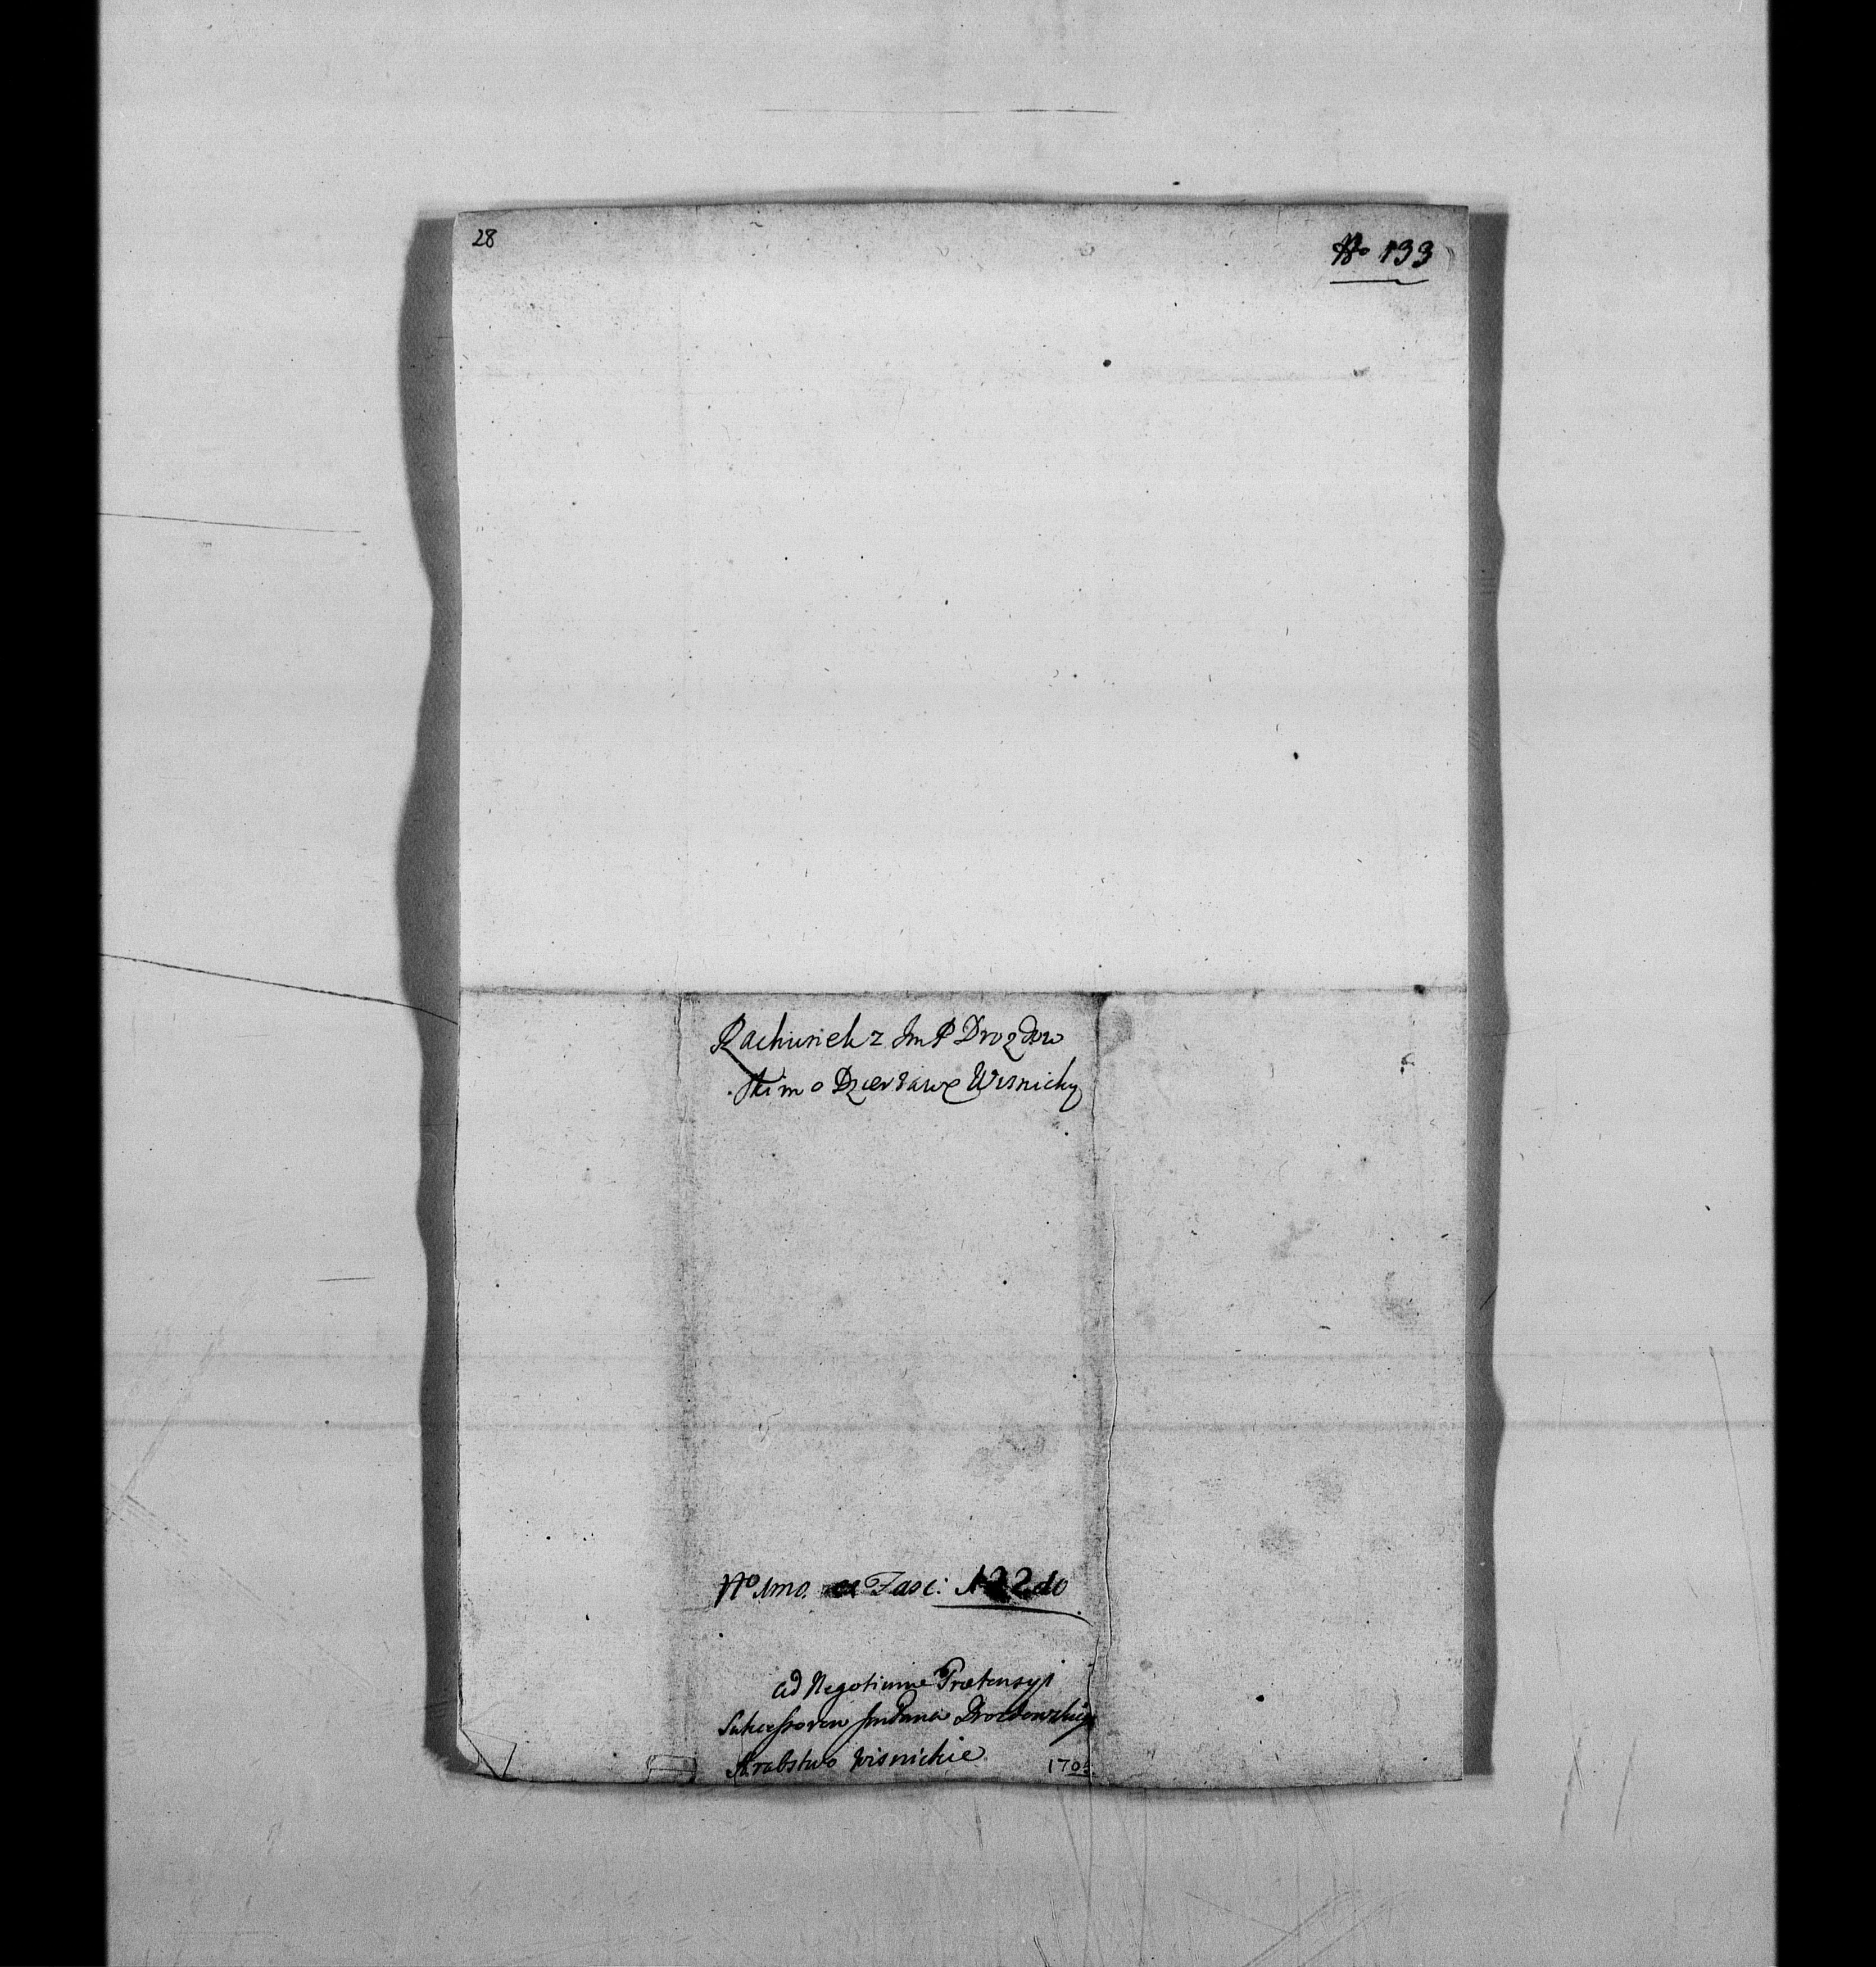 28
No 133
Rachunek z Jm P Drozdow
skim o Dzerżawę Wisnicky
No 1mo. Fasc: 122do
ad Negotium Prætensyi
Sukcessorow Jmć Pana Drozdowskieg
Hrabstwo Wisnickie 170